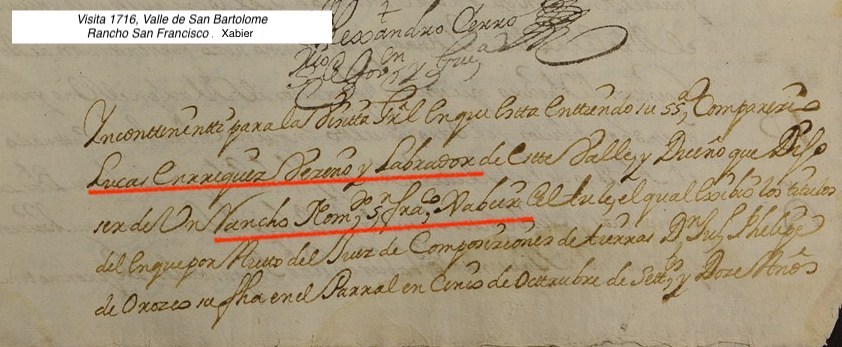 Visita 1716, Valle de San Bartolome
Rancho San Francisco . Xabier
Alexandro Cerro
Incontinentte para la Visita Gral en que Estta Enttendiendo su ssª Comparezio
Lucas Enrriquez Vezino y Labrador de Este Valle, y Dueño que Dijo
ser de Un Rancho Nomdo Sn Franco Xabier el qual Exibio los titulos
del En que por Autto del Juez de Composiziones de tierras Dn Juº Phelipe
de Orozco su fha en el Parral en Cinco de Octtubre de Settos y Doze Años